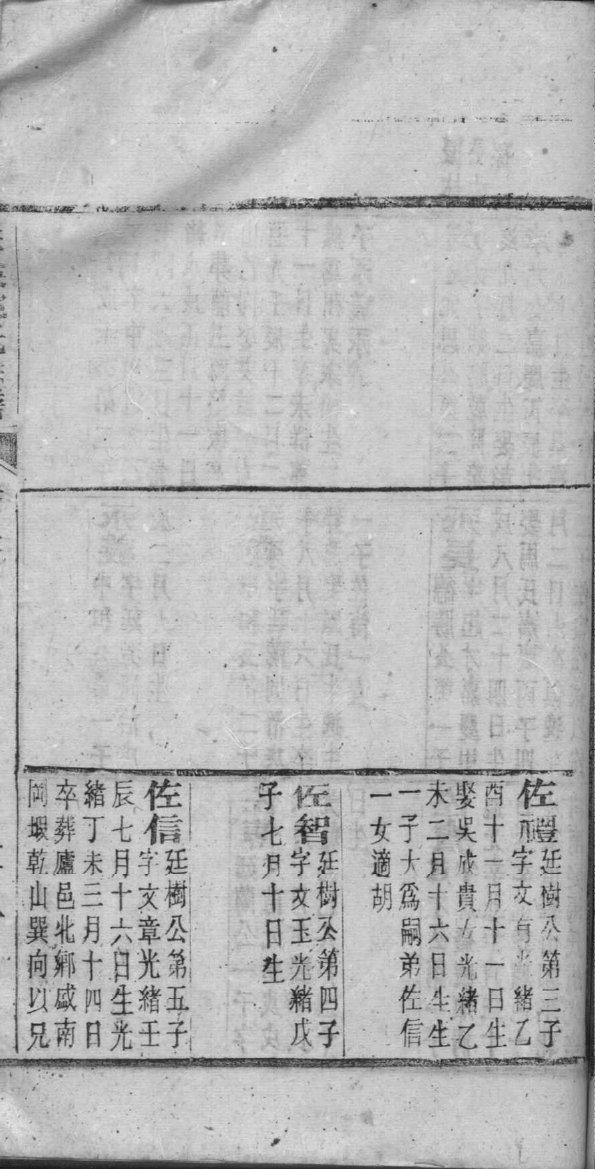 佐禮廷樹公第三子
字文有光緒乙
酉十一月十一日生
娶吳成貴女光緒乙
未二月十六日生生
一子大爲嗣弟佐信
一女適胡
佐智廷樹公第四子
字文玉光緒戊
子七月十日生
佐信廷樹公第五子
字文章光緒壬
辰七月十六日生光
緒丁未三月十四日
卒葬廬邑北鄉盛南
岡塅乾山巽向以兄